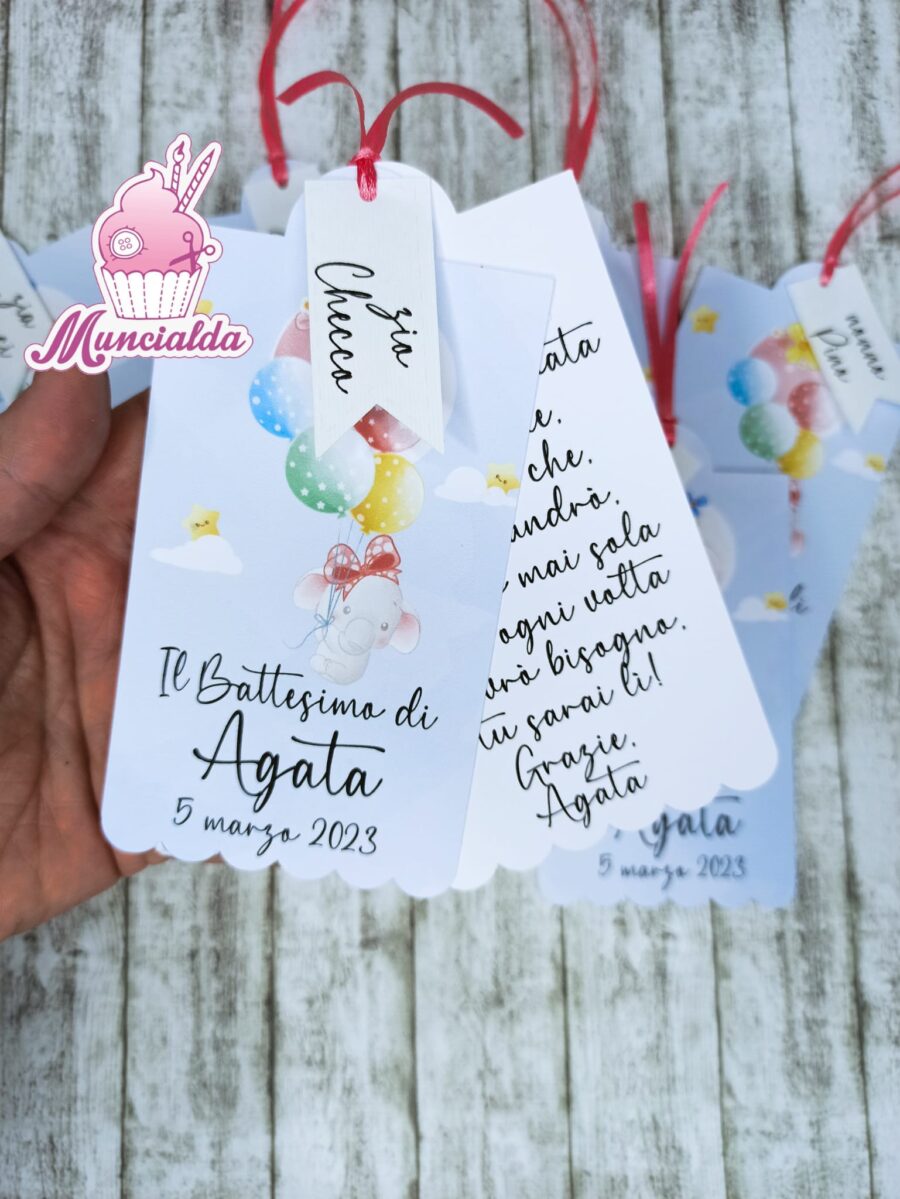 Muncialda
zio
Checco
Il Battesimo di
Agata
5 marzo 2023
che,
mai sola
ogni volta
bisogno,
tu sarai lì!
Grazie,
Agata
nonno
Pino
Agata
5 marzo 2023